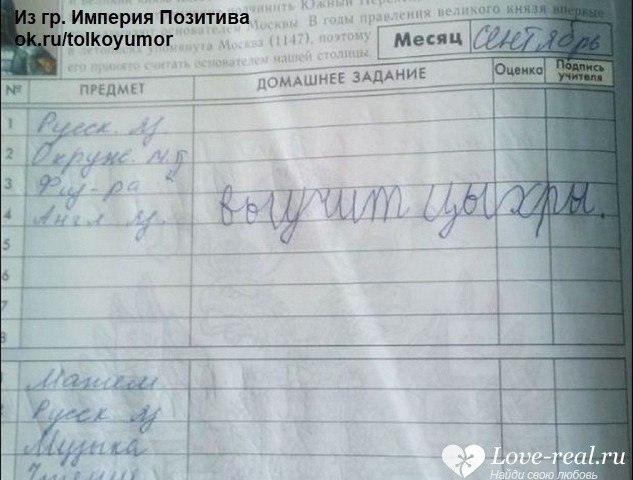 Из гр. Империя Позитива
ok.ru/tolkoyumor
основателем Москвы. В годы правления великого князя впервые
Москва (1147), поэтому
его принято считать основателем нашей столицы.
Месяц сентябрь
№ ПРЕДМЕТ ДОМАШНЕЕ ЗАДАНИЕ Оценка Подпись учителя
1 Русск. яз.
2 Окруж. м.
3 Физ-ра
4 Англ. яз. выучит цыхры.
5
6
7
8
Матем
Русск яз
Музыка
Чтение
Love-real.ru
Найди свою любовь